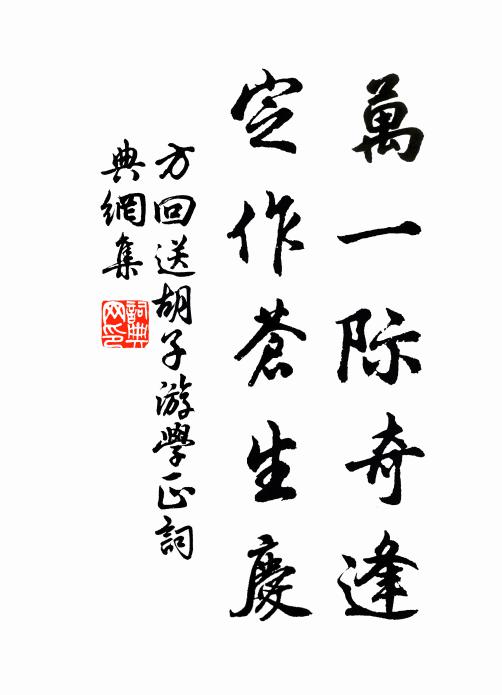 萬一际奇逢
定作蒼生慶
方回送胡子游學正詞
典網集
詞典网印